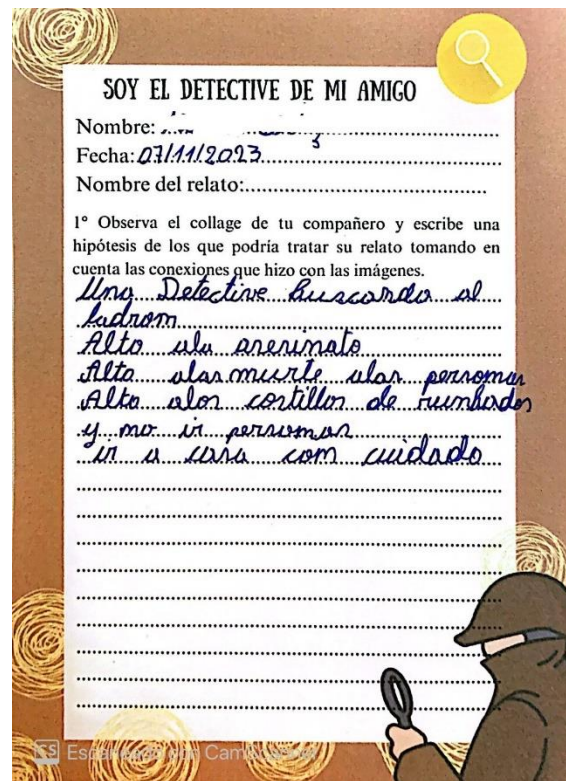 SOY EL DETECTIVE DE MI AMIGO
Nombre:
Fecha: 07/11/2023
Nombre del relato:
1º Observa el collage de tu compañero y escribe una
hipótesis de los que podría tratar su relato tomando en
cuenta las conexiones que hizo con las imágenes.
Una Detective buscando al
ladrom
Alto ala asesinato
Alto alas muerte alas personas
Alto alos costillos de
y mo ir personas
ir a casa com cuidado
CS Escaneado con CamScanner